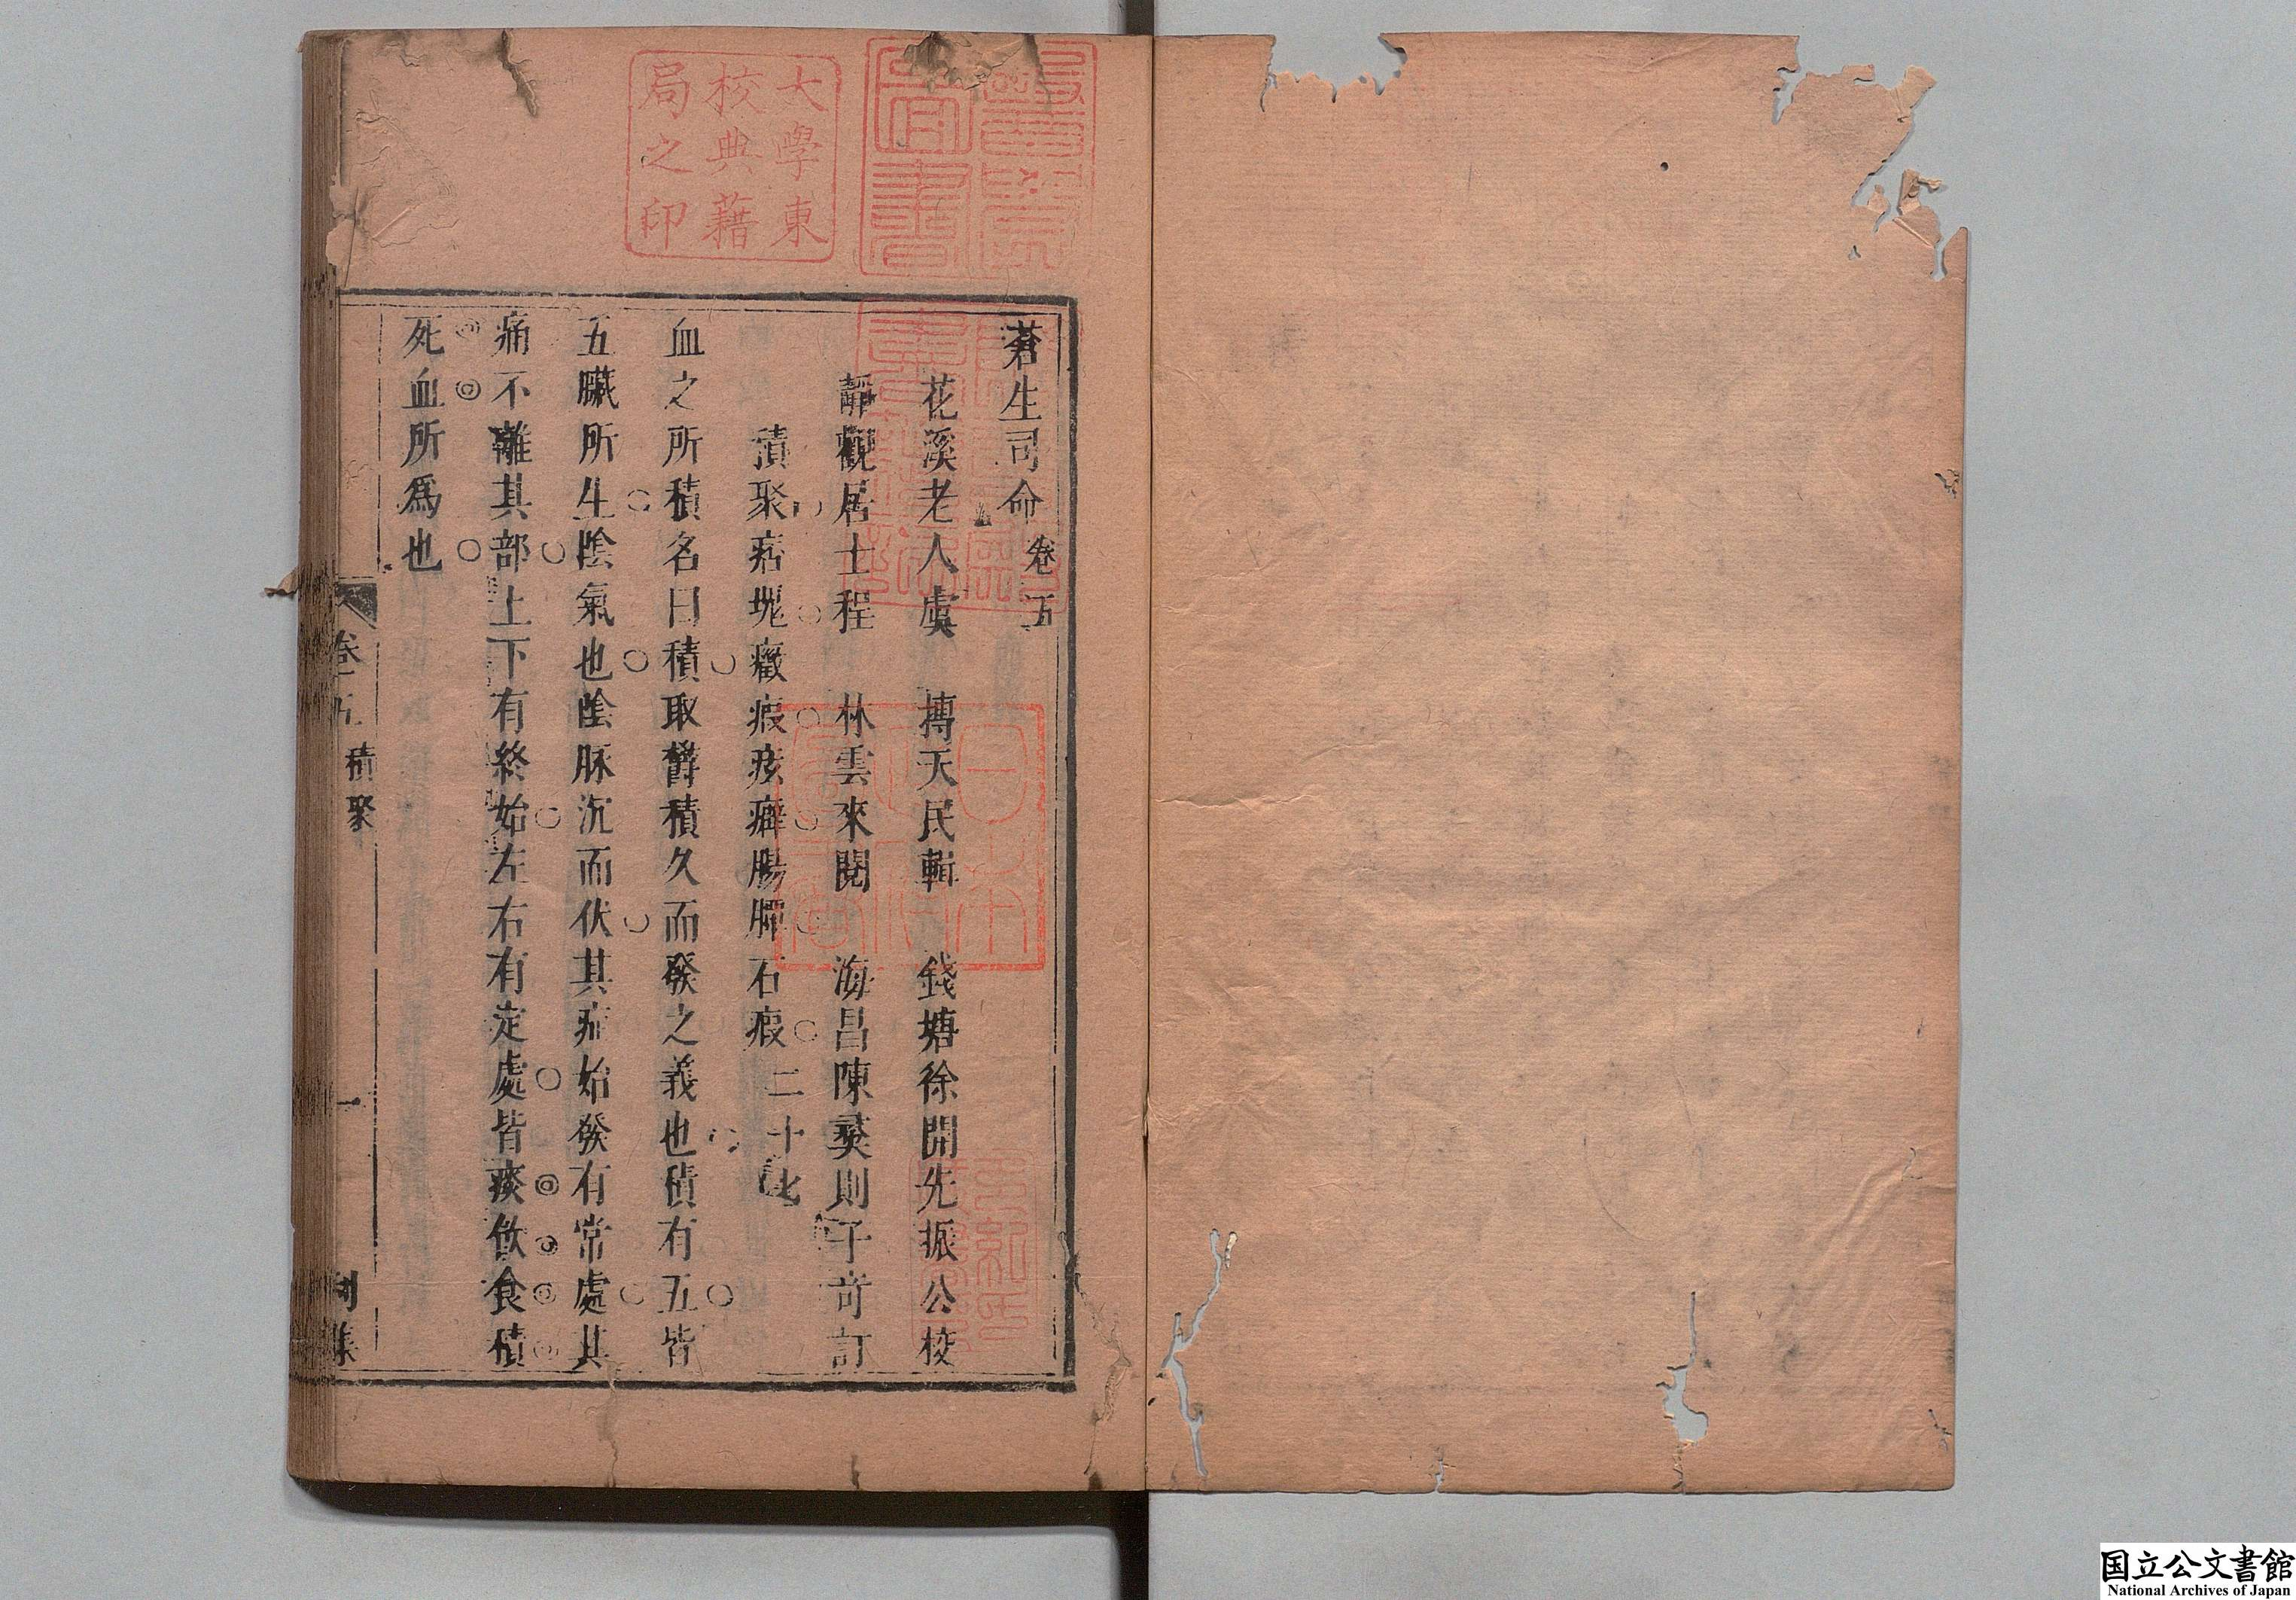 蒼生司命 卷五
花溪老人虞 摶天民輯 錢塘徐開先振公校
靜觀居士程 林雲來閱 海昌陳藎則子奇訂
積聚痞塊癥瘕痃癖腸覃石瘕 二十七
血之所積名曰積取欝積久而發之義也積有五皆
五臟所生陰氣也陰脉沉而伏其症始發有常處其
痛不離其部上下有終始左右有定處皆痰飲食積
死血所爲也
卷五 積聚 一 利集
大學東
校典籍
局之印
日本
政府
圖書
国立公文書館
National Archives of Japan